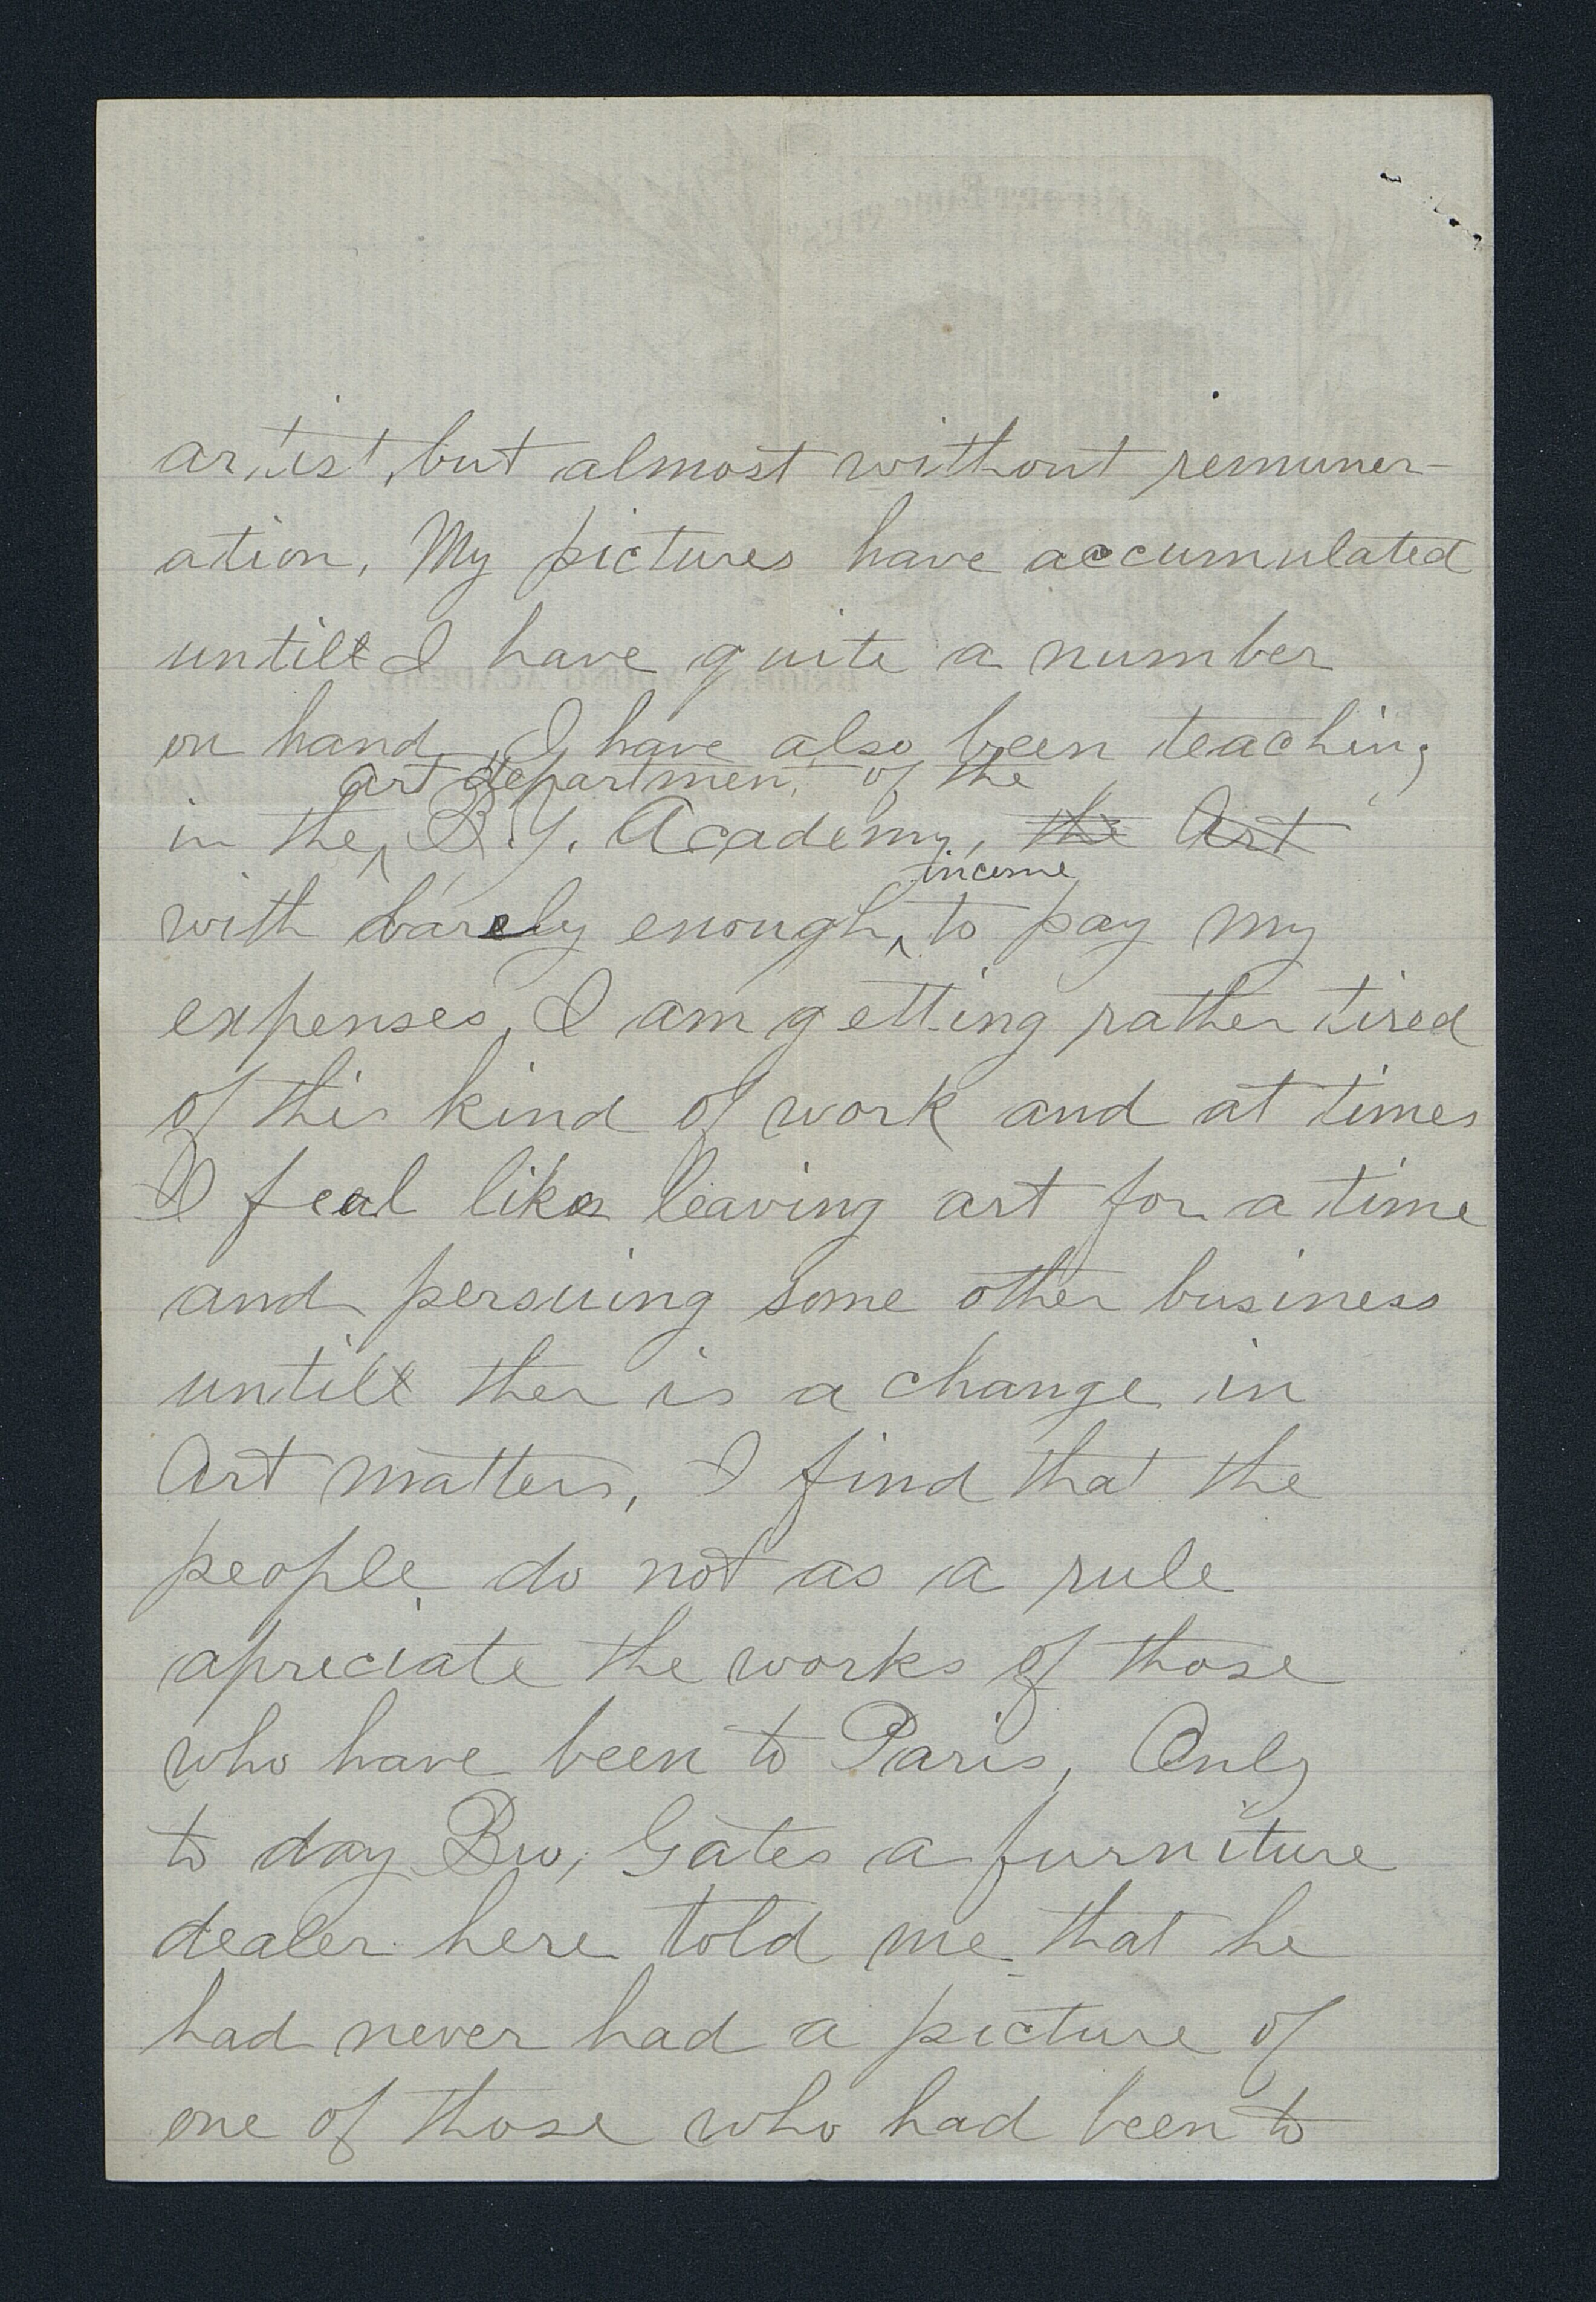 artist, but almost without remuner-
ation, My pictures have accumulated
untill I have quite a number
on hand, I have also been teaching
art department of the
in the ^ B.Y. Academy, the Art
income
with barely enough ^ to pay my
expenses, I am getting rather tired
of this kind of work and at times
I feal like leaving art for a time
and persuing some other business
untill ther is a change in
Art matters, I find that the
people do not as a rule
apreciate the works of those
who have been to Paris, Only
to day Bro, Gates a furniture
dealer here told me that he
had never had a picture of
one of those who had been to